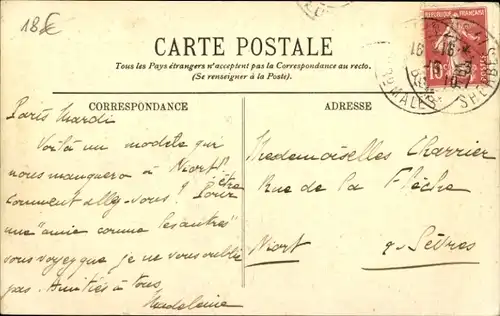 18€
RÉPUBLIQUE FRANÇAISE
10c
POSTES
CARTE POSTALE
Tous les Pays étrangers n'acceptent pas la Correspondance au recto.
(Se renseigner à la Poste).
CORRESPONDANCE
ADRESSE
Paris Mardi
Voilà un modele qui
nous manquera à Niort!
Comment allez-vous! Pour être
une "amie comme les autres"
vous voyez que je ne vous oublie
pas. Amitiés à tous,
Madeleine
Mesdemoiselles Charrier
Rue de la Flêche
Niort
2-Sèvres